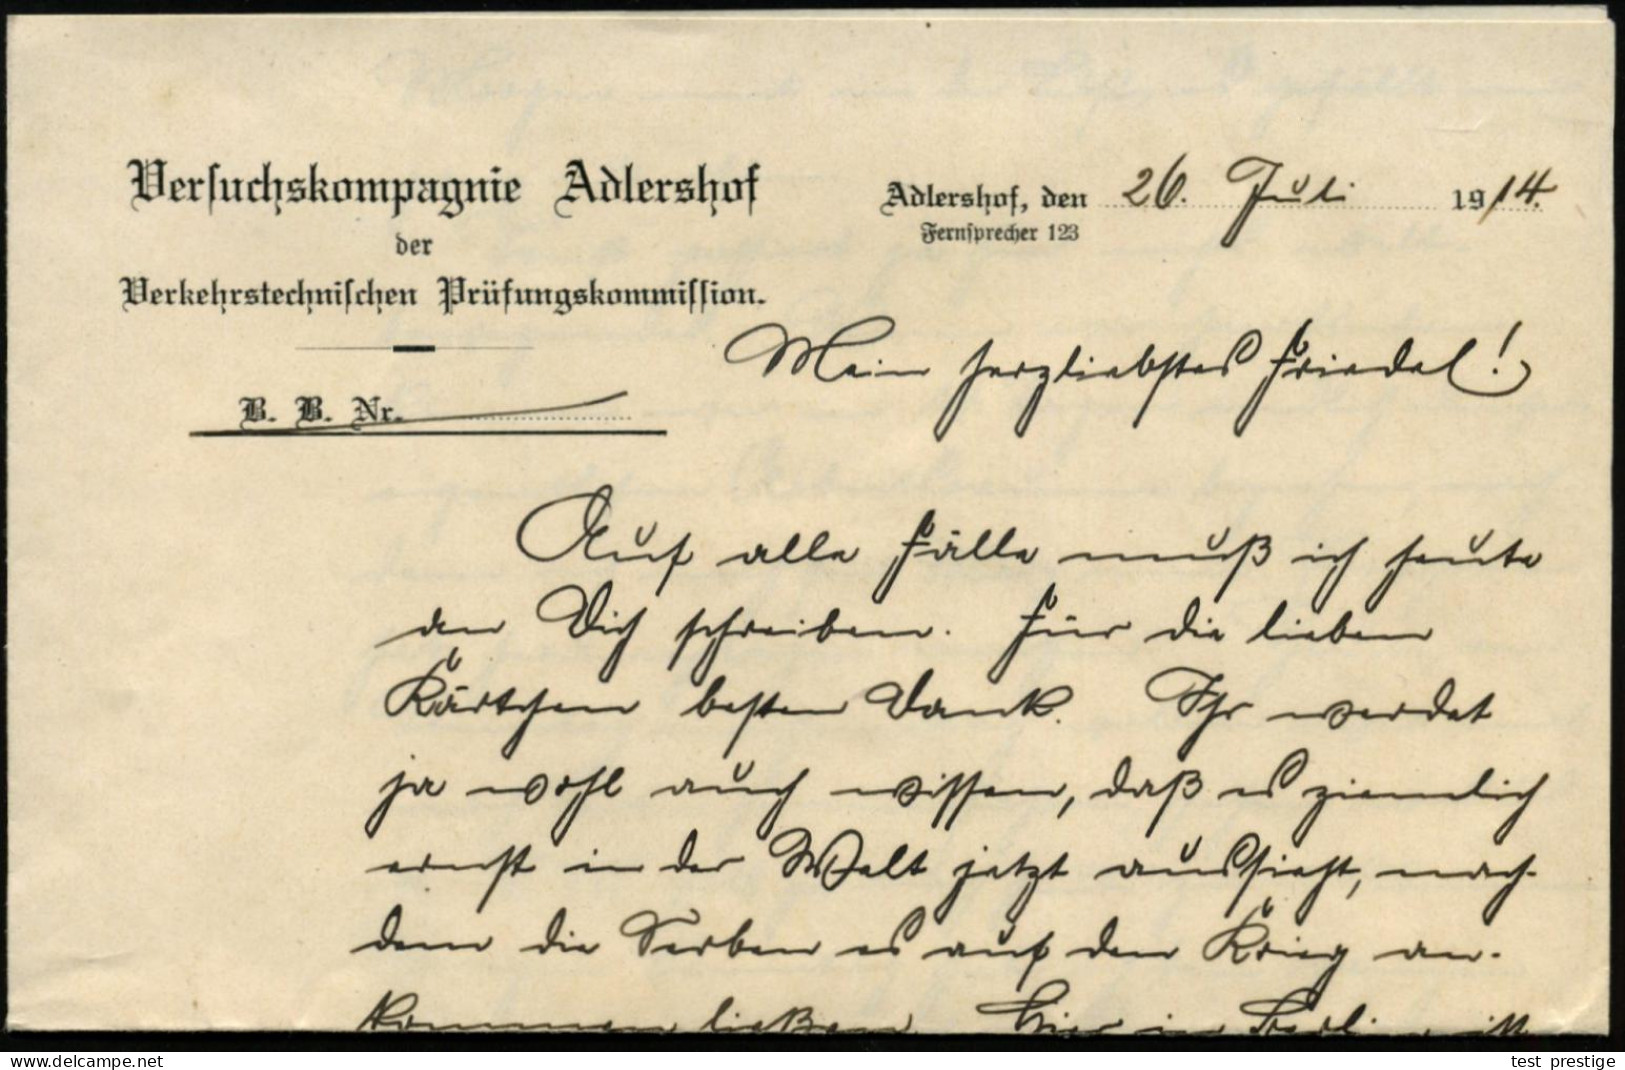 Versuchskompagnie Adlershof
der
Verkehrstechnischen Prüfungskommission.
B. B. Nr.
Adlershof, den 26. Juli 1914.
Fernsprecher 123
Mein herzliebstes Friedel!
Auf alle Fälle muß ich heute
an Dich schreiben. Für die lieben
Kärtchen besten Dank. Ihr werdet
ja wohl auch wissen, daß es ziemlich
ernst in der Welt jetzt aussieht, nach-
dem die Serben es auf den Krieg an-
kommen ließen. Hier in Berlin ist
delcampe.net
test_prestige